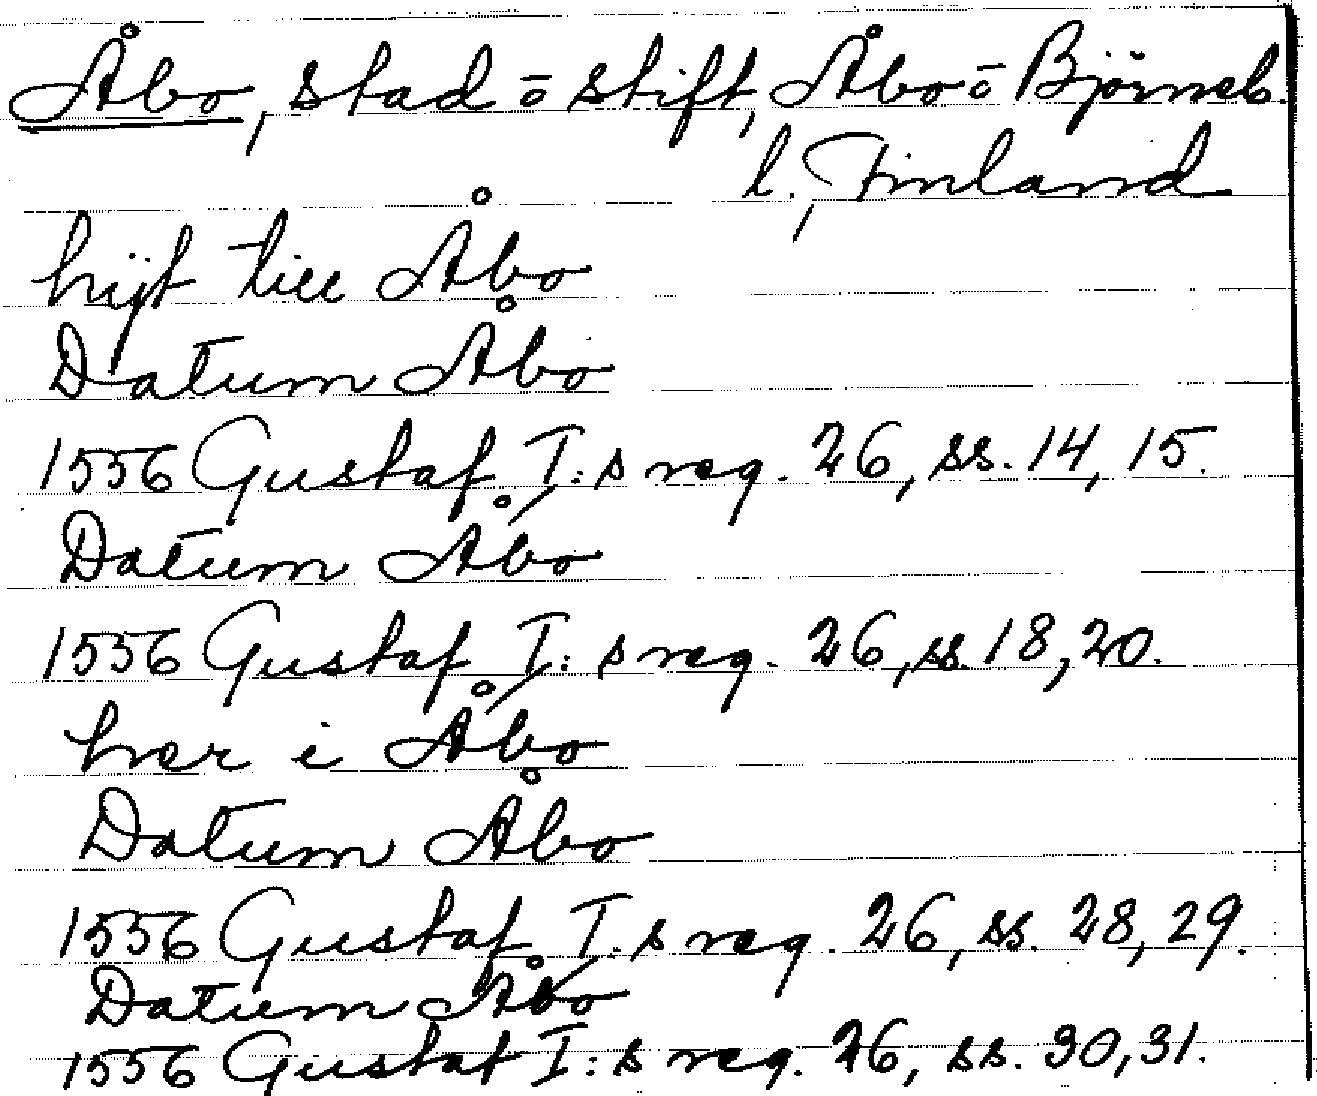 Åbo, stad ō stift, Åbo ō Björneb.
l., Finland
hijt till Åbo
Datum Åbo
1556 Gustaf I:s reg. 26, ss. 14, 15.
Datum Åbo
1556 Gustaf I:s reg. 26, ss. 18, 20.
her i Åbo
Datum Åbo
1556 Gustaf I:s reg. 26, ss. 28, 29.
Datum Åbo
1556 Gustaf I:s reg. 26, ss. 30, 31.